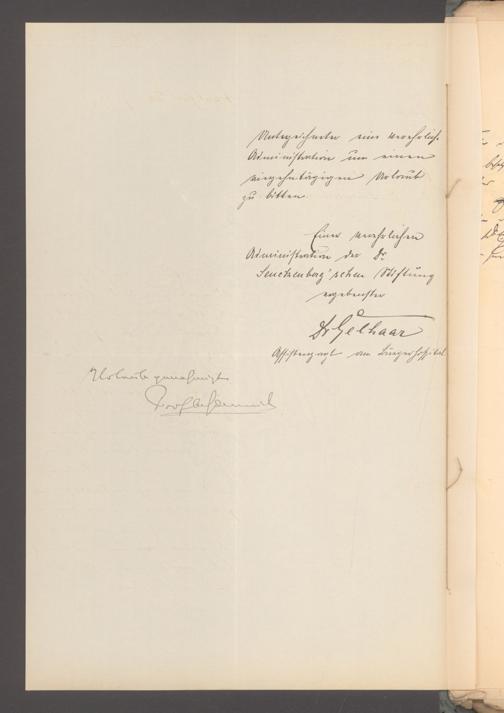 Unterzeichneter eine verehrlich.
Administration um einen
vierzehntägigen Urlaub
zu bitten.
Einer verehrlichen
Administration der Dr
Senckenberg'schen Stiftung
ergebenster
Dr Gelhaar
Assistenzarzt am Bürgerhospital.
Urlaub genehmigt